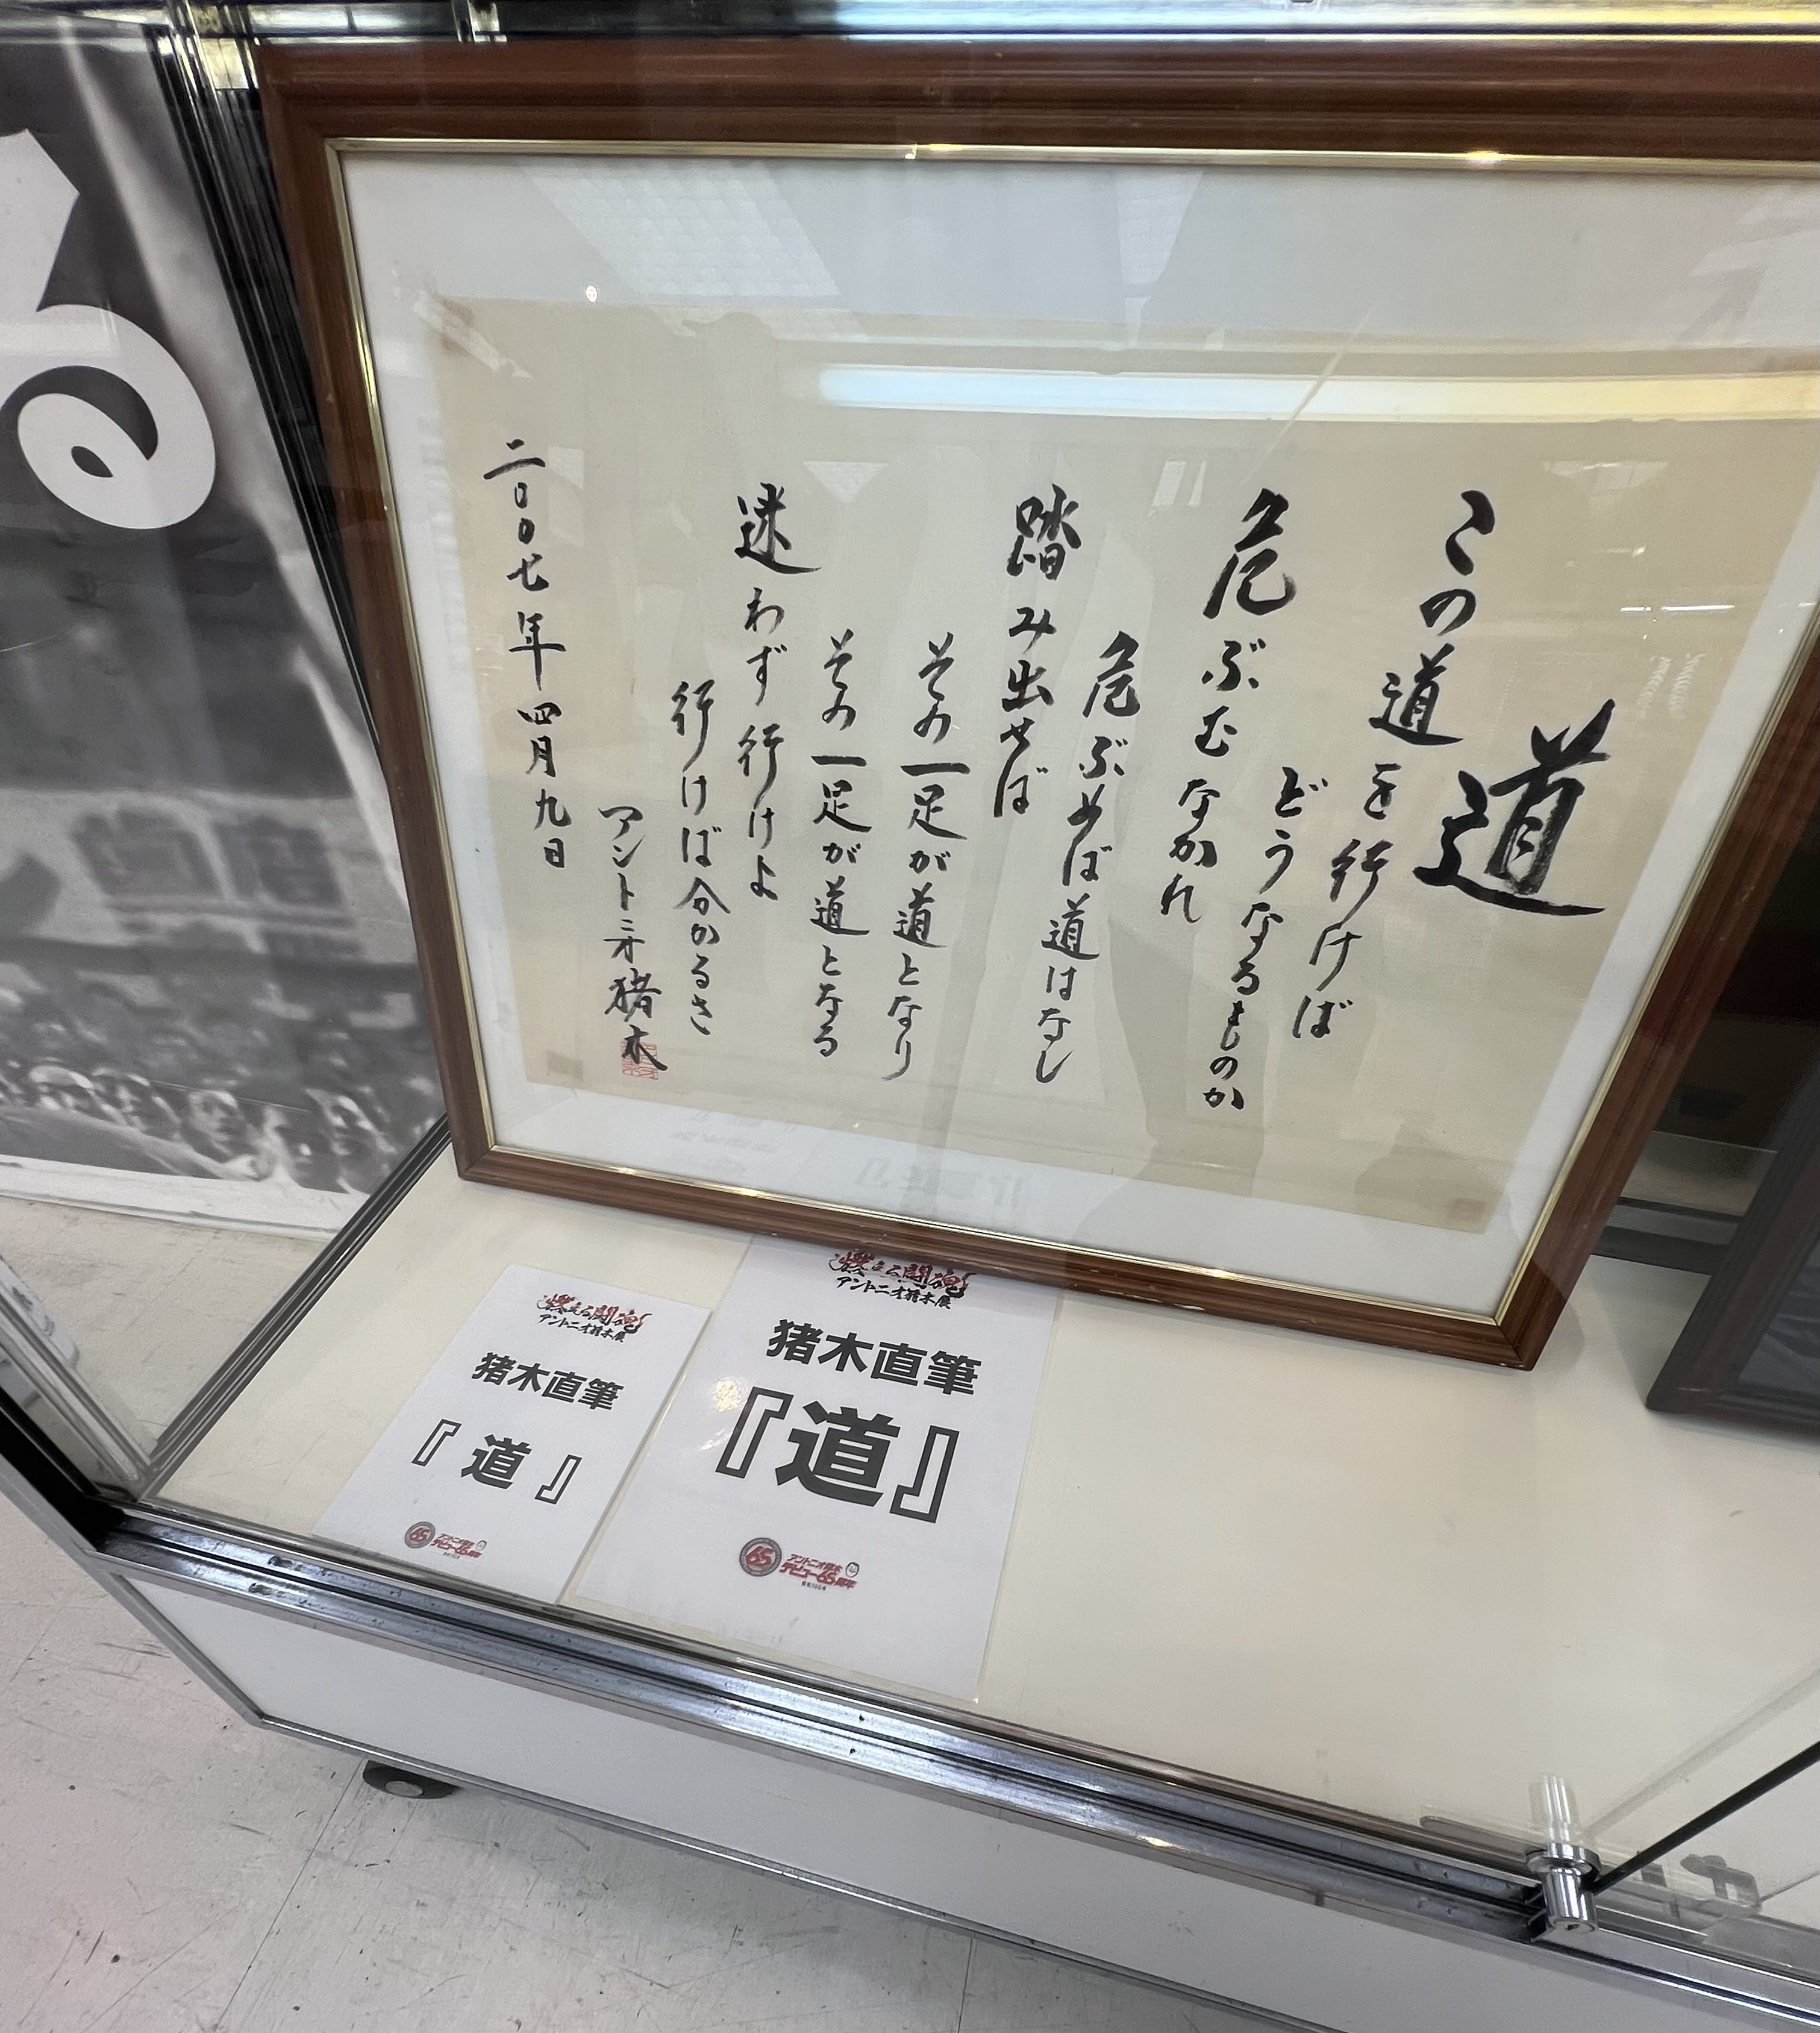 道
この道を行けば
どうなるものか
危ぶむなかれ
危ぶめば道はなし
踏み出せば
その一足が道となり
その一足が道となる
迷わず行けよ
行けば分かるさ
アントニオ猪木
二〇〇七年四月九日
燃える闘魂
アントニオ猪木展
猪木直筆
『道』
65
アントニオ猪木
デビュー65周年
燃える闘魂
アントニオ猪木展
猪木直筆
『道』
65
アントニオ猪木
デビュー65周年
る